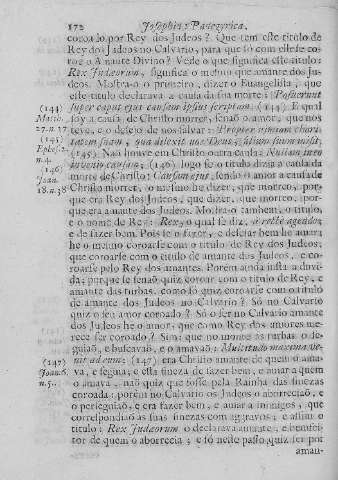 172 Josephina Panegyrica.
coroaſo por Rey dos Judeos? Que tem eſte titulo de
Rey dos Judeos no Calvario, para que ſó com elle ſe co-
roe o Amante Divino? Vede o que ſignifica eſte titulo:
Rex Judæorum, ſignifica o meſmo que amante dos Ju-
deos. Moſtra-o o primeiro, dizer o Evangeliſta, que
eſte titulo declarava a cauſa da ſua morte: Poſuerunt
(144) ſuper caput ejus cauſam ipſius ſcriptam. (144) E qual
Matth. foy a cauſa de Chriſto morrer, ſenaõ o amor, que nos
27. n. 37 teve, e o deſejo de nos ſalvar: Propter nimiam chari-
(145) tatem ſuam, qua dilexit nos Deus,
Epheſ. 2. (145) Naõ houve em Chriſto outra cauſa: Nullam
n. 4. invenio cauſam; (146) logo ſe o titulo dizia a cauſa da
(146) morte de Chriſto: Cauſam ejus, ſendo o amor a cauſa de
Joan. Chriſto morrer, o meſmo he dizer, que morreo, por-
18. n. 38 que era Rey dos Judeos, que dizer, que morreo, por-
que era amante dos Judeos. Moſtra-o tambem, o titulo,
e o nome de Rey: Rex, o qual ſe diz, à recte agendo,
e de fazer bem. Pois ſe o fazer, e deſejar bem he amar;
he o meſmo coroarſe com o titulo de Rey dos Judeos,
que coroarſe com o titulo de amante dos Judeos, e co-
roarſe pelo Rey dos amantes. Porém ainda inſta a duvi-
da; porque ſe ſenaõ quiz coroar com o titulo de Rey, e
amante das turbas, como ſó quiz coroarſe com o titulo
de amante dos Judeos no Calvario? Só no Calvario
quiz o ſeu amor coroado? Só ſer no Calvario amante
dos Judeos he o amor, que como Rey dos amores me-
rece ſer coroado? Sim; que no monte as turbas o ſe-
guiaõ, e buſcavaõ, e o amavaõ: Multitudo maxima ve-
(147) nit ad eum; (147) era Chriſto amante de quem o ama-
Joan. 6. va, e ſeguia; e eſta fineza de fazer bem, e amar a quem
n. 5. o amava, naõ quiz que foſſe pela Rainha das finezas
coroada: porém no Calvario os Judeos o aborreciaõ, e
o perſeguiaõ, e era fazer bem, e amar a inimigos, que
correſpondiaõ as ſuas finezas com aggravos; e aſſim o
titulo: Rex Judæorum o declarava amante, e bemfei-
tor de quem o aborrecia; e ſó neſte paſſo quiz ſer por
aman-